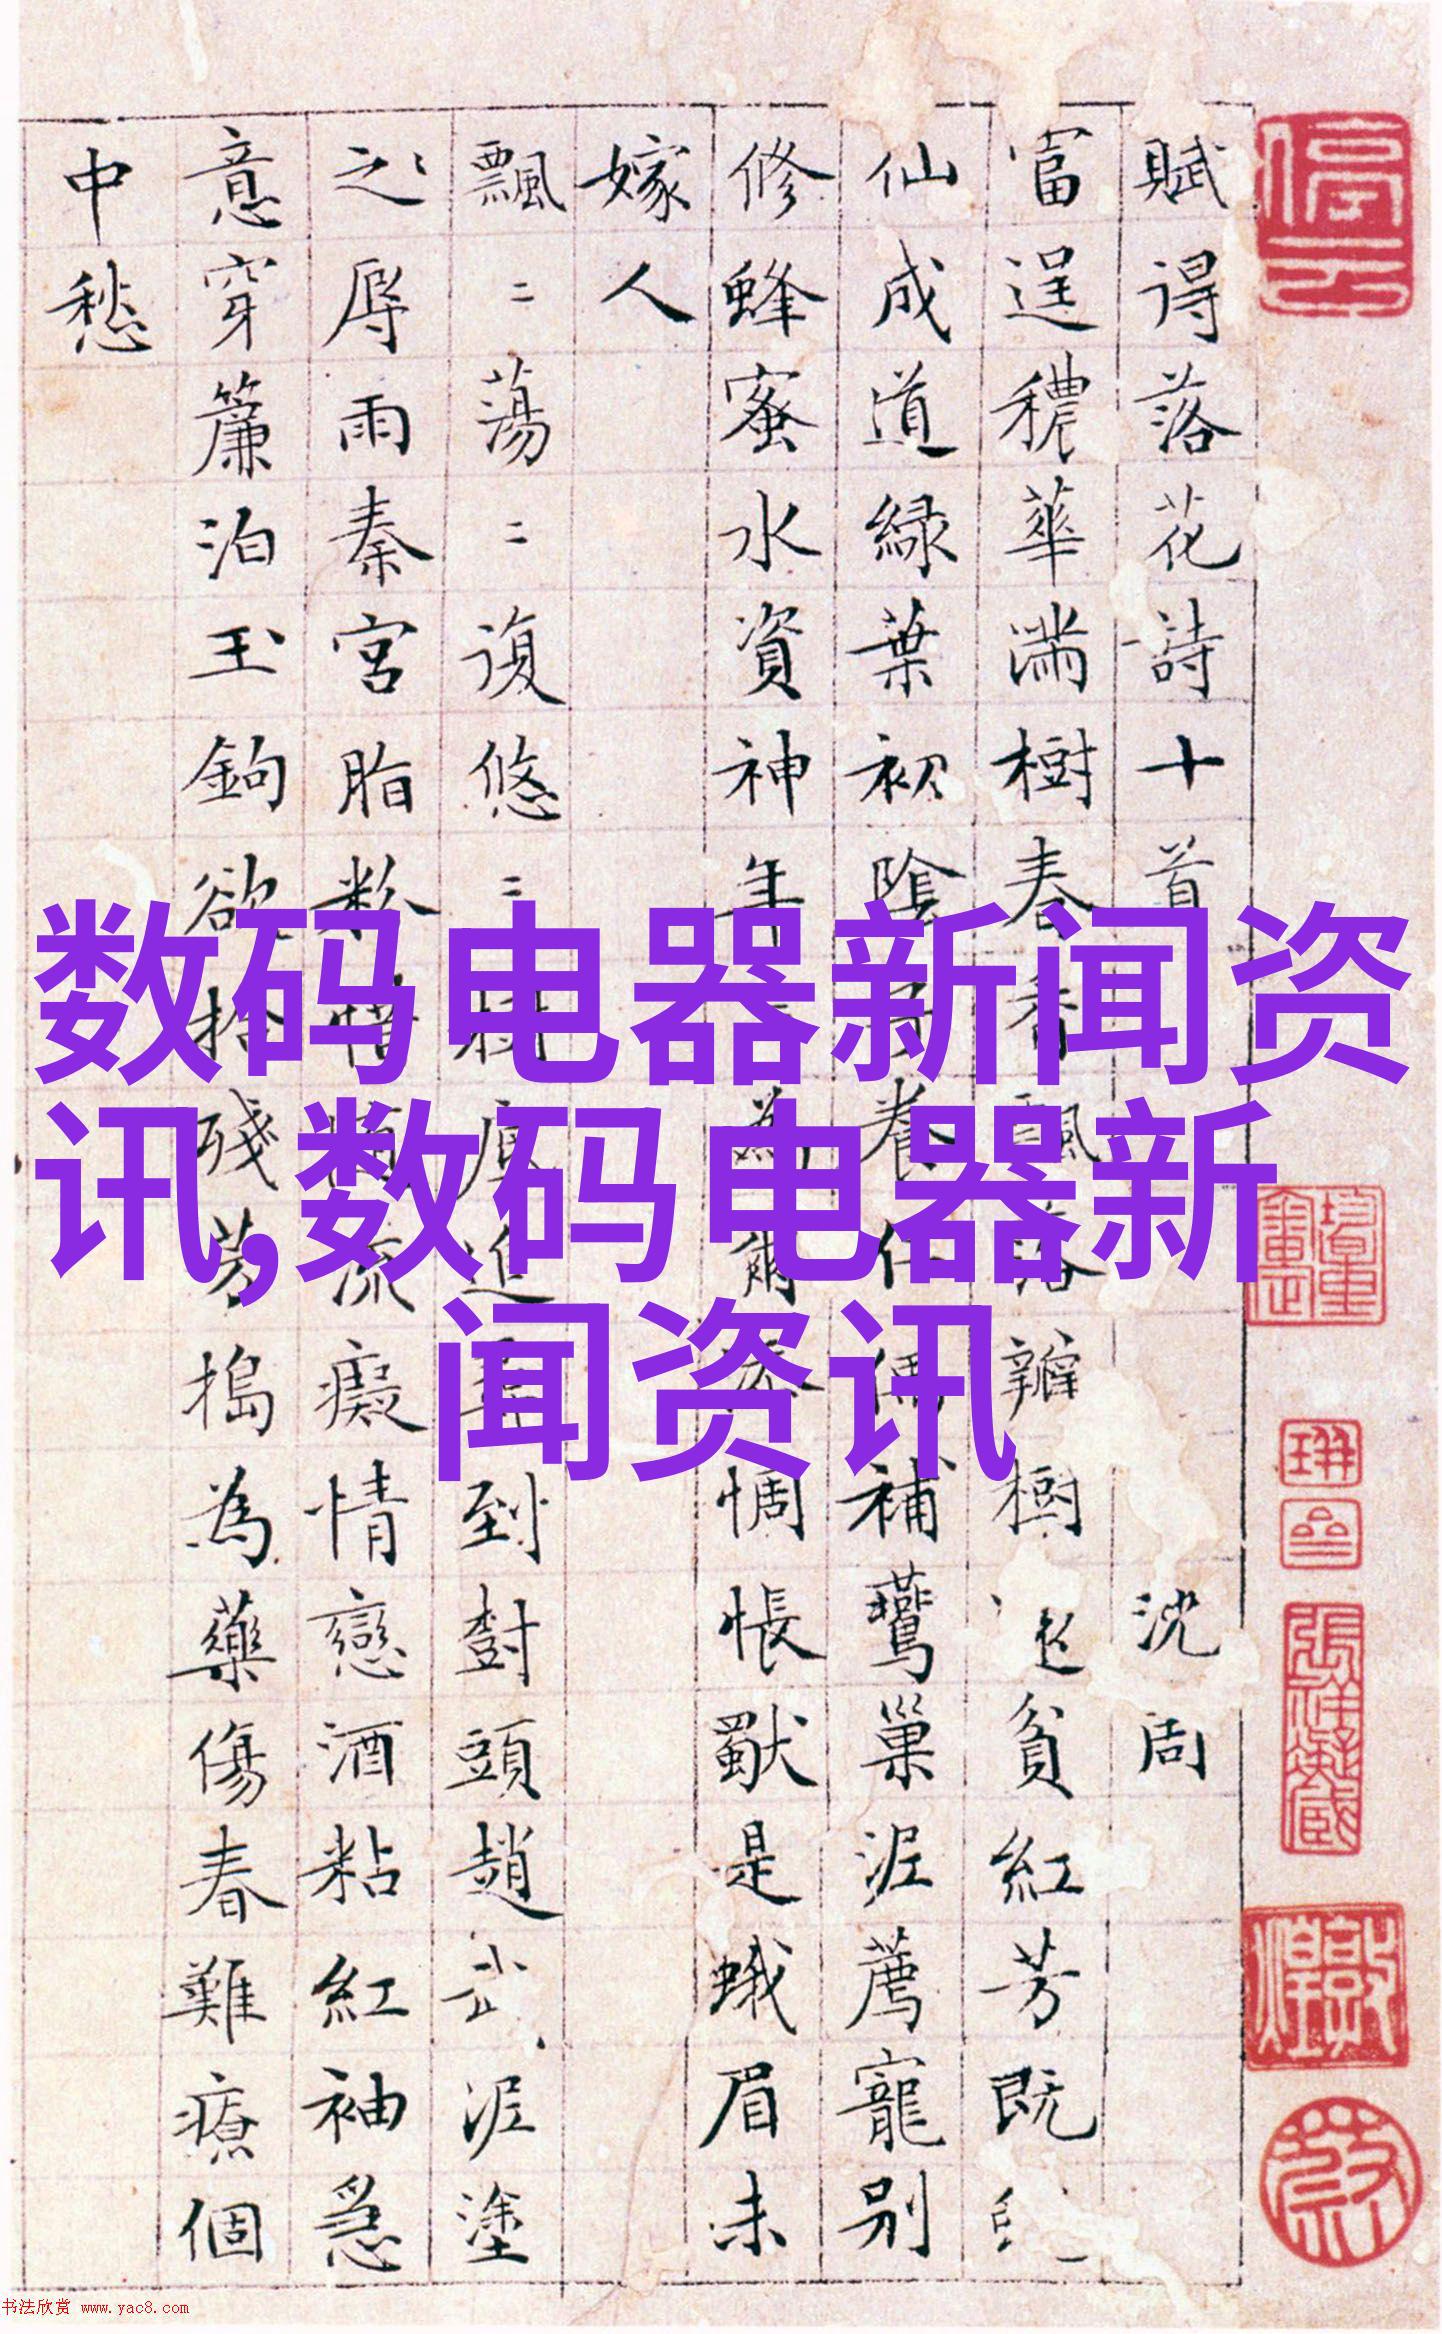 賦得落花詩十首 沈周
富逞穠華滿樹春香飄落瓣樹 貧紅芳既
仙成道綠葉初陰 養仁 補鶯巢泥薦寵別
修蜂蜜水資神年 為爾 惆悵 是蛾眉未
嫁人
飄〻蕩〻復悠〻樹底追 到樹頭趙武泥塗
之辱雨秦宮脂粉惜 流癡情戀酒粘紅袖急
意穿簾泊玉鉤欲拾殘芳搗為藥傷春難療個
中愁
数码电器新闻资
讯,数码电器新
闻资讯
书法欣赏 www.yac8.com